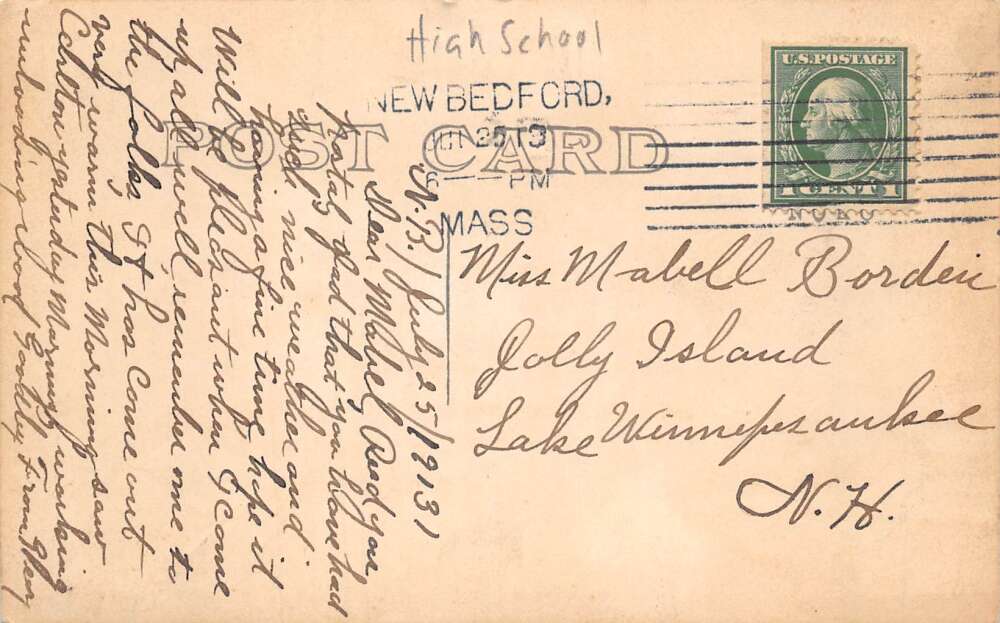 High School
NEW BEDFORD,
25 13
6 PM
MASS
POST CARD
U.S. POSTAGE
1 CENT 1
Miss Mabell Borden
Jolly Island
Lake Winnepesaukee
N.H.
N.B. July 25/1913
Dear Mabel Recd your
Postal glad that you have had
such nice weather and
having a fine time hope it
Will be pleasant when I come
up all well remember me to
the folks It has come out
very warm this Morning saw
Carlton yesterday Morning working
unloading wood Goodby From